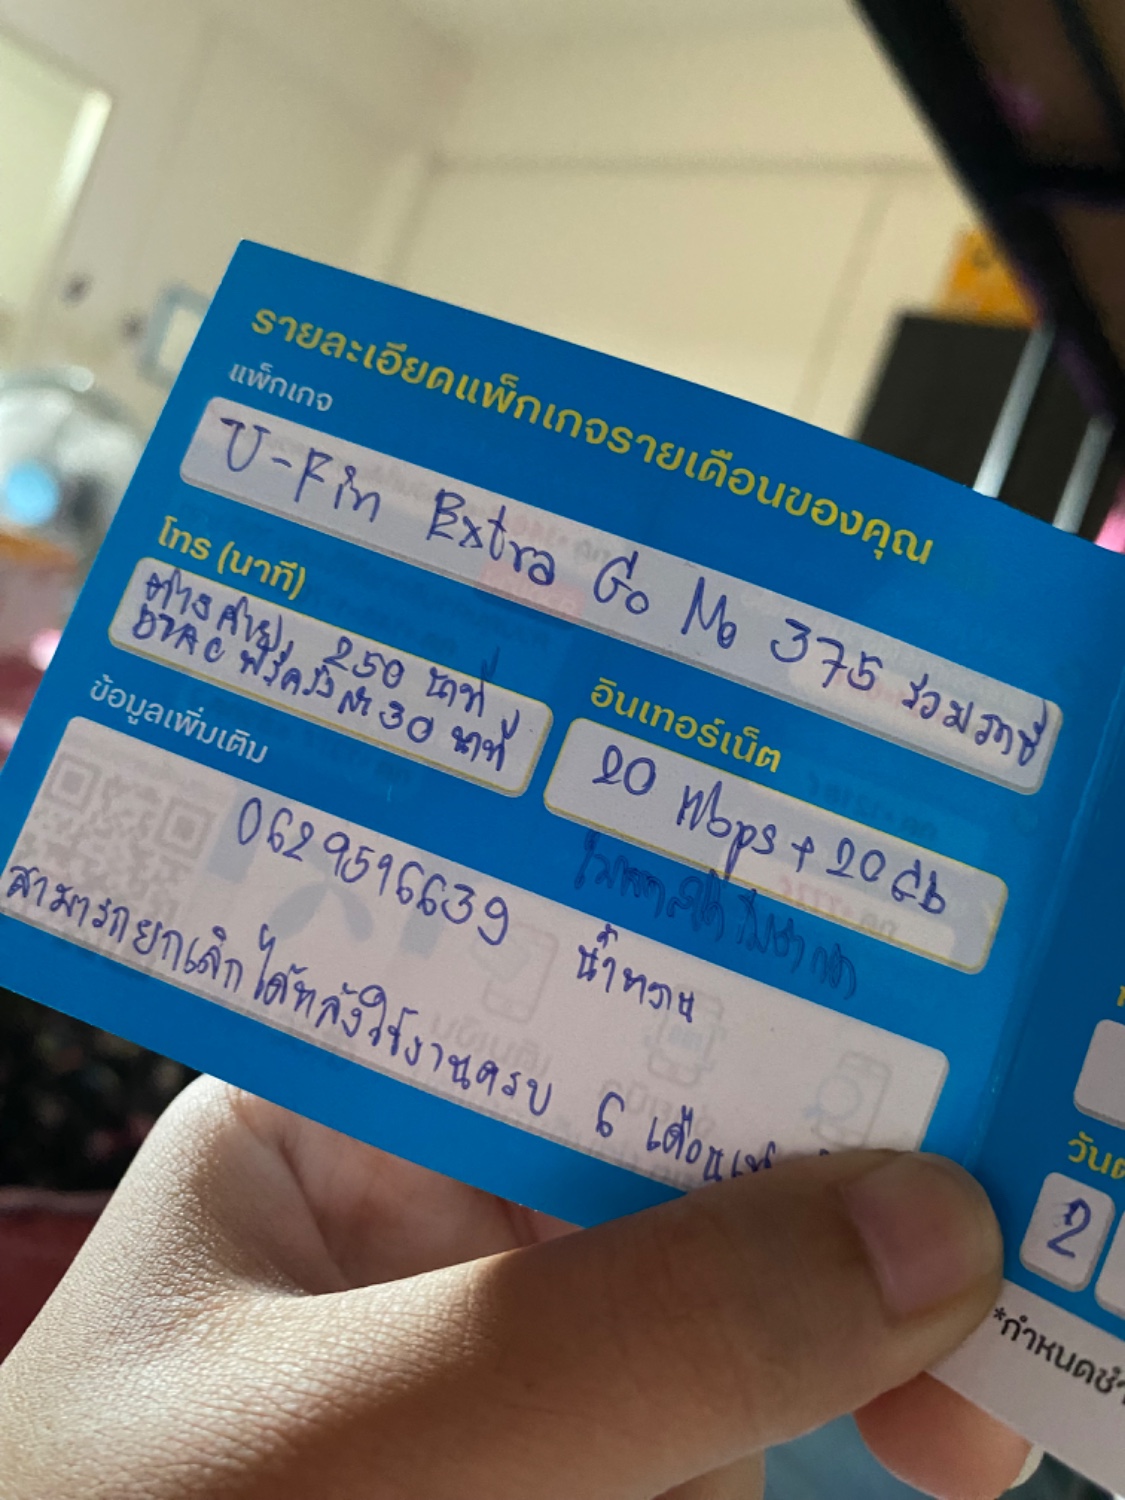 รายละเอียดแพ็กเกจรายเดือนของคุณ
แพ็กเกจ
U-Fin Extra Go Mo 375 รวมภาษี
โทร (นาที)
ต่างค่าย 250 นาที
DTAC ฟรีครั้งละ 30 นาที
อินเทอร์เน็ต
20 Mbps + 20 Gb
ข้อมูลเพิ่มเติม
0629516639 น้ำหวาน
สามารถยกเลิกได้หลังใช้งานครบ 6 เดือน
วัน
2
*กำหนดชำ